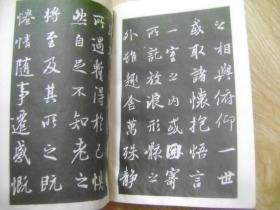 之相與俯仰一世
或取諸懷抱悟言
一室之內或因寄
所託放浪形骸之
外雖趣舍萬殊靜
所遇暫得於己快
然自足不知老之
將至及其所之既
惓情隨事遷感慨